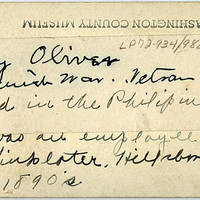 ASHINGTON COUNTY MUSEUM
LP72-934/98
y Oliver
nish War. Vetran
d in the Philipin
was an employee
Hillsbo
1890's